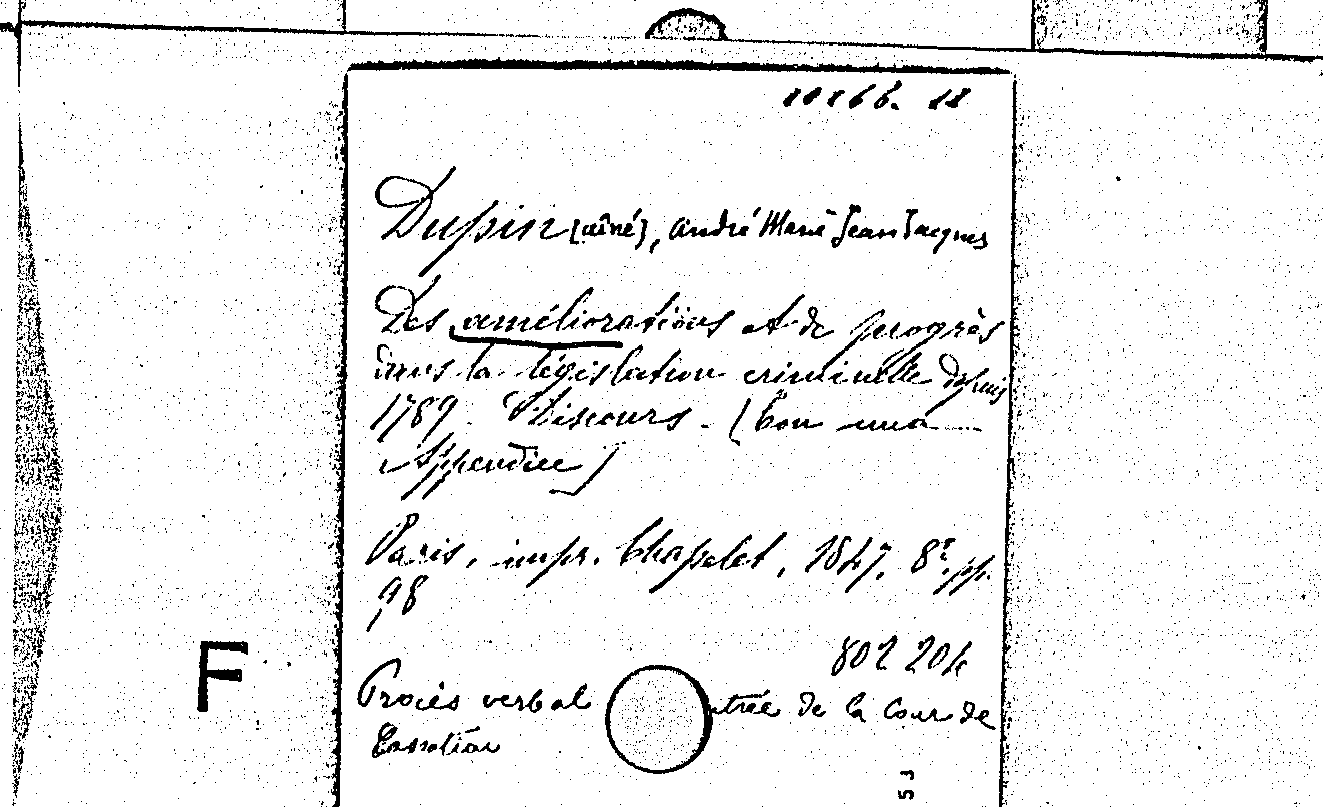 10166. 18
Dupin (aîné), André Marie Jean Jacques
Des améliorations et de progrès
dans la législation criminelle depuis
1789. Discours. (Con una
Appendice)
Paris, impr. Chapelet, 1847. 8º, pp.
98
802 204
F
Procès verbal trée de la Cour de
Cassation
5J